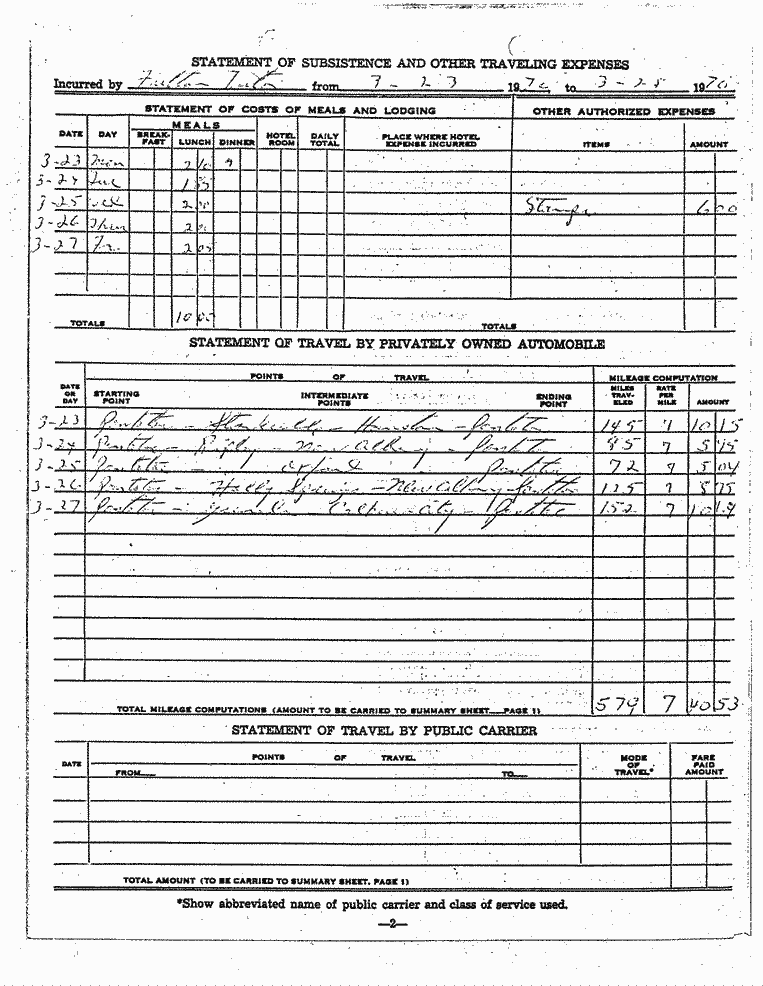 STATEMENT OF SUBSISTENCE AND OTHER TRAVELING EXPENSES
Incurred by Fulton Tutor from 3-23 1970 to 3-28 1970
STATEMENT OF COSTS OF MEALS AND LODGING OTHER AUTHORIZED EXPENSES
DATE DAY MEALS BREAK-FAST LUNCH DINNER HOTEL ROOM DAILY TOTAL PLACE WHERE HOTEL EXPENSE INCURRED ITEMS AMOUNT
3-23 Mon
3-24 Tue
3-25 Wed 2 00 Stamps 6 00
3-26 Thur 2
3-27 Fri 2 05
TOTALS 10 00 TOTALS
STATEMENT OF TRAVEL BY PRIVATELY OWNED AUTOMOBILE
DATE OR DAY POINTS OF TRAVEL MILEAGE COMPUTATION
STARTING POINT INTERMEDIATE POINTS ENDING POINT MILES TRAV-ELED RATE PER MILE AMOUNT
3-23 Pontotoc - Starkville - Houston - Pontotoc 145 7 10 15
3-24 Pontotoc - Ripley - New Albany - Pontotoc 85 7 5 95
3-25 Pontotoc - Oxford Pontotoc 72 7 5 04
3-26 Pontotoc - Holly Springs - New Albany Pontotoc 125 7 8 75
3-27 Pontotoc - Calhoun City - Pontotoc 152 7 10 64
TOTAL MILEAGE COMPUTATIONS (AMOUNT TO BE CARRIED TO SUMMARY SHEET PAGE 1) 579 7 40 53
STATEMENT OF TRAVEL BY PUBLIC CARRIER
DATE POINTS OF TRAVEL MODE OF TRAVEL* FARE PAID AMOUNT
FROM TO
TOTAL AMOUNT (TO BE CARRIED TO SUMMARY SHEET, PAGE 1)
*Show abbreviated name of public carrier and class of service used.
—2—